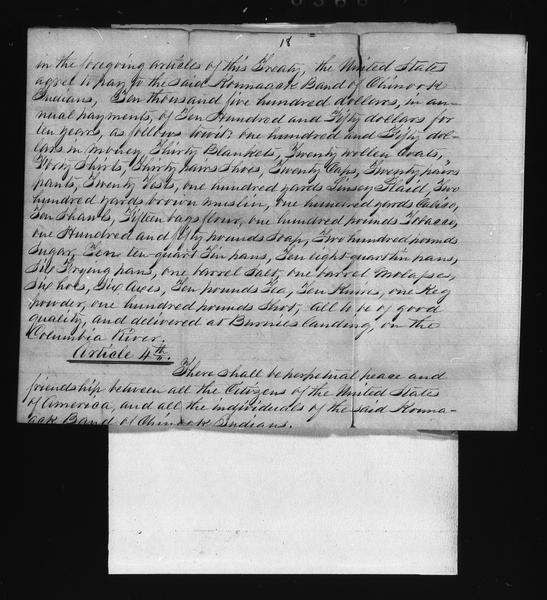 18
in the foregoing articles of this Treaty, the United States
agree to pay to the said Konnaack Band of Chinook
Indians, Ten thousand five hundred dollars, in an-
nual payments, of Ten Hundred and Fifty dollars for
ten years, as follows towit: one hundred and Fifty dol-
lars in money, Thirty Blankets, Twenty wollen Coats,
Forty Shirts, Thirty pairs Shoes, Twenty Caps, Twenty pairs
pants, Twenty Vests, one hundred yards Linsey Plaid, Two
hundred yards brown muslin, one hundred yards Calico,
Ten Shawls, Fifteen bags flour, one hundred pounds Tobacco,
one Hundred and fifty pounds soap, Two hundred pounds
Sugar, Ten ten-quart Tin pans, Ten eight quart tin pans,
Six Frying pans, one barrel Salt, one barrel Molasses,
Six hoes, Six Axes, Ten pounds Tea, Ten Knives, one Keg
powder, one hundred pounds Shot, all to be of good
quality, and delivered at Burnies Landing, on the
Columbia River.
Article 4th.
There shall be perpetual peace and
friendship between all the Citizens of the United States
of America, and all the individuals of the said Konna-
ack Band of Chinook Indians.